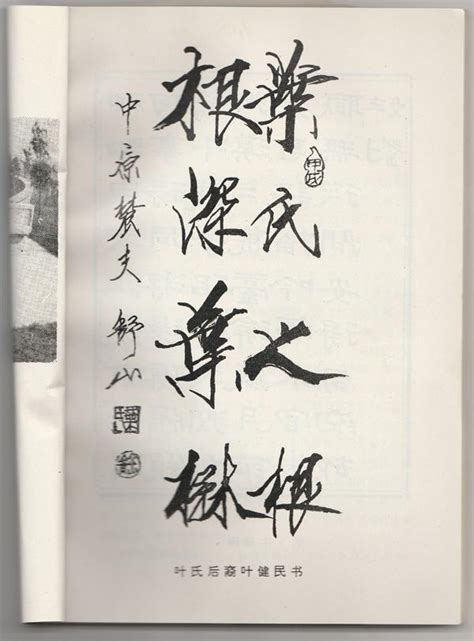 葉氏之根
根深葉
中原農夫 舒山
叶氏后裔叶健民书